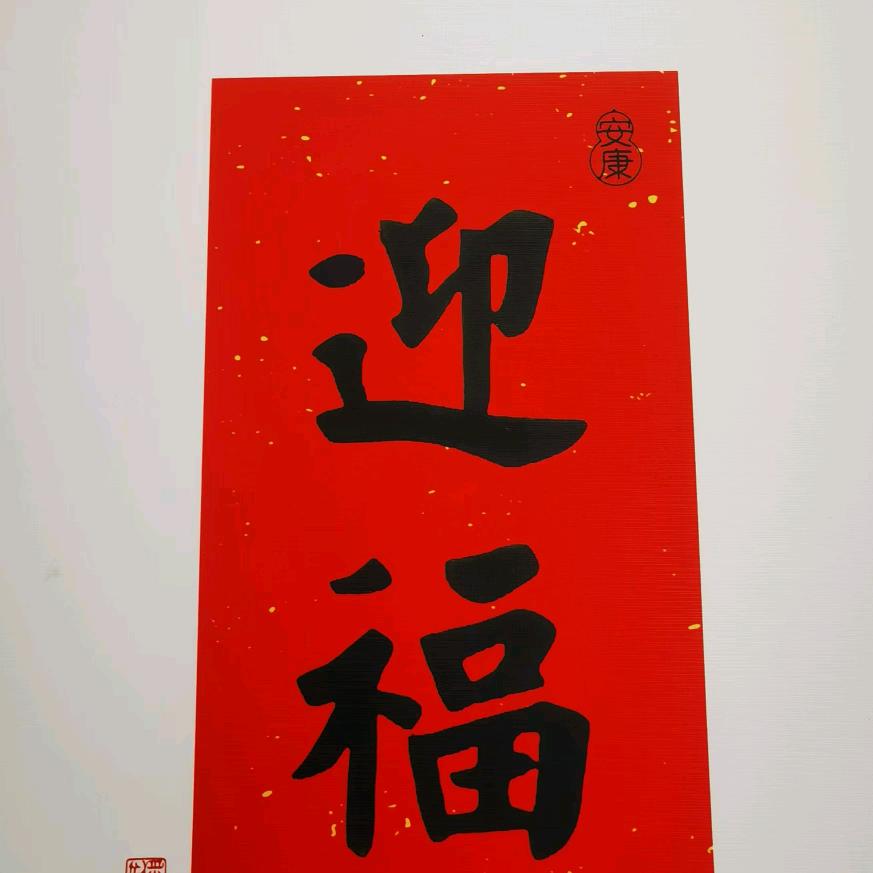 安康
迎福